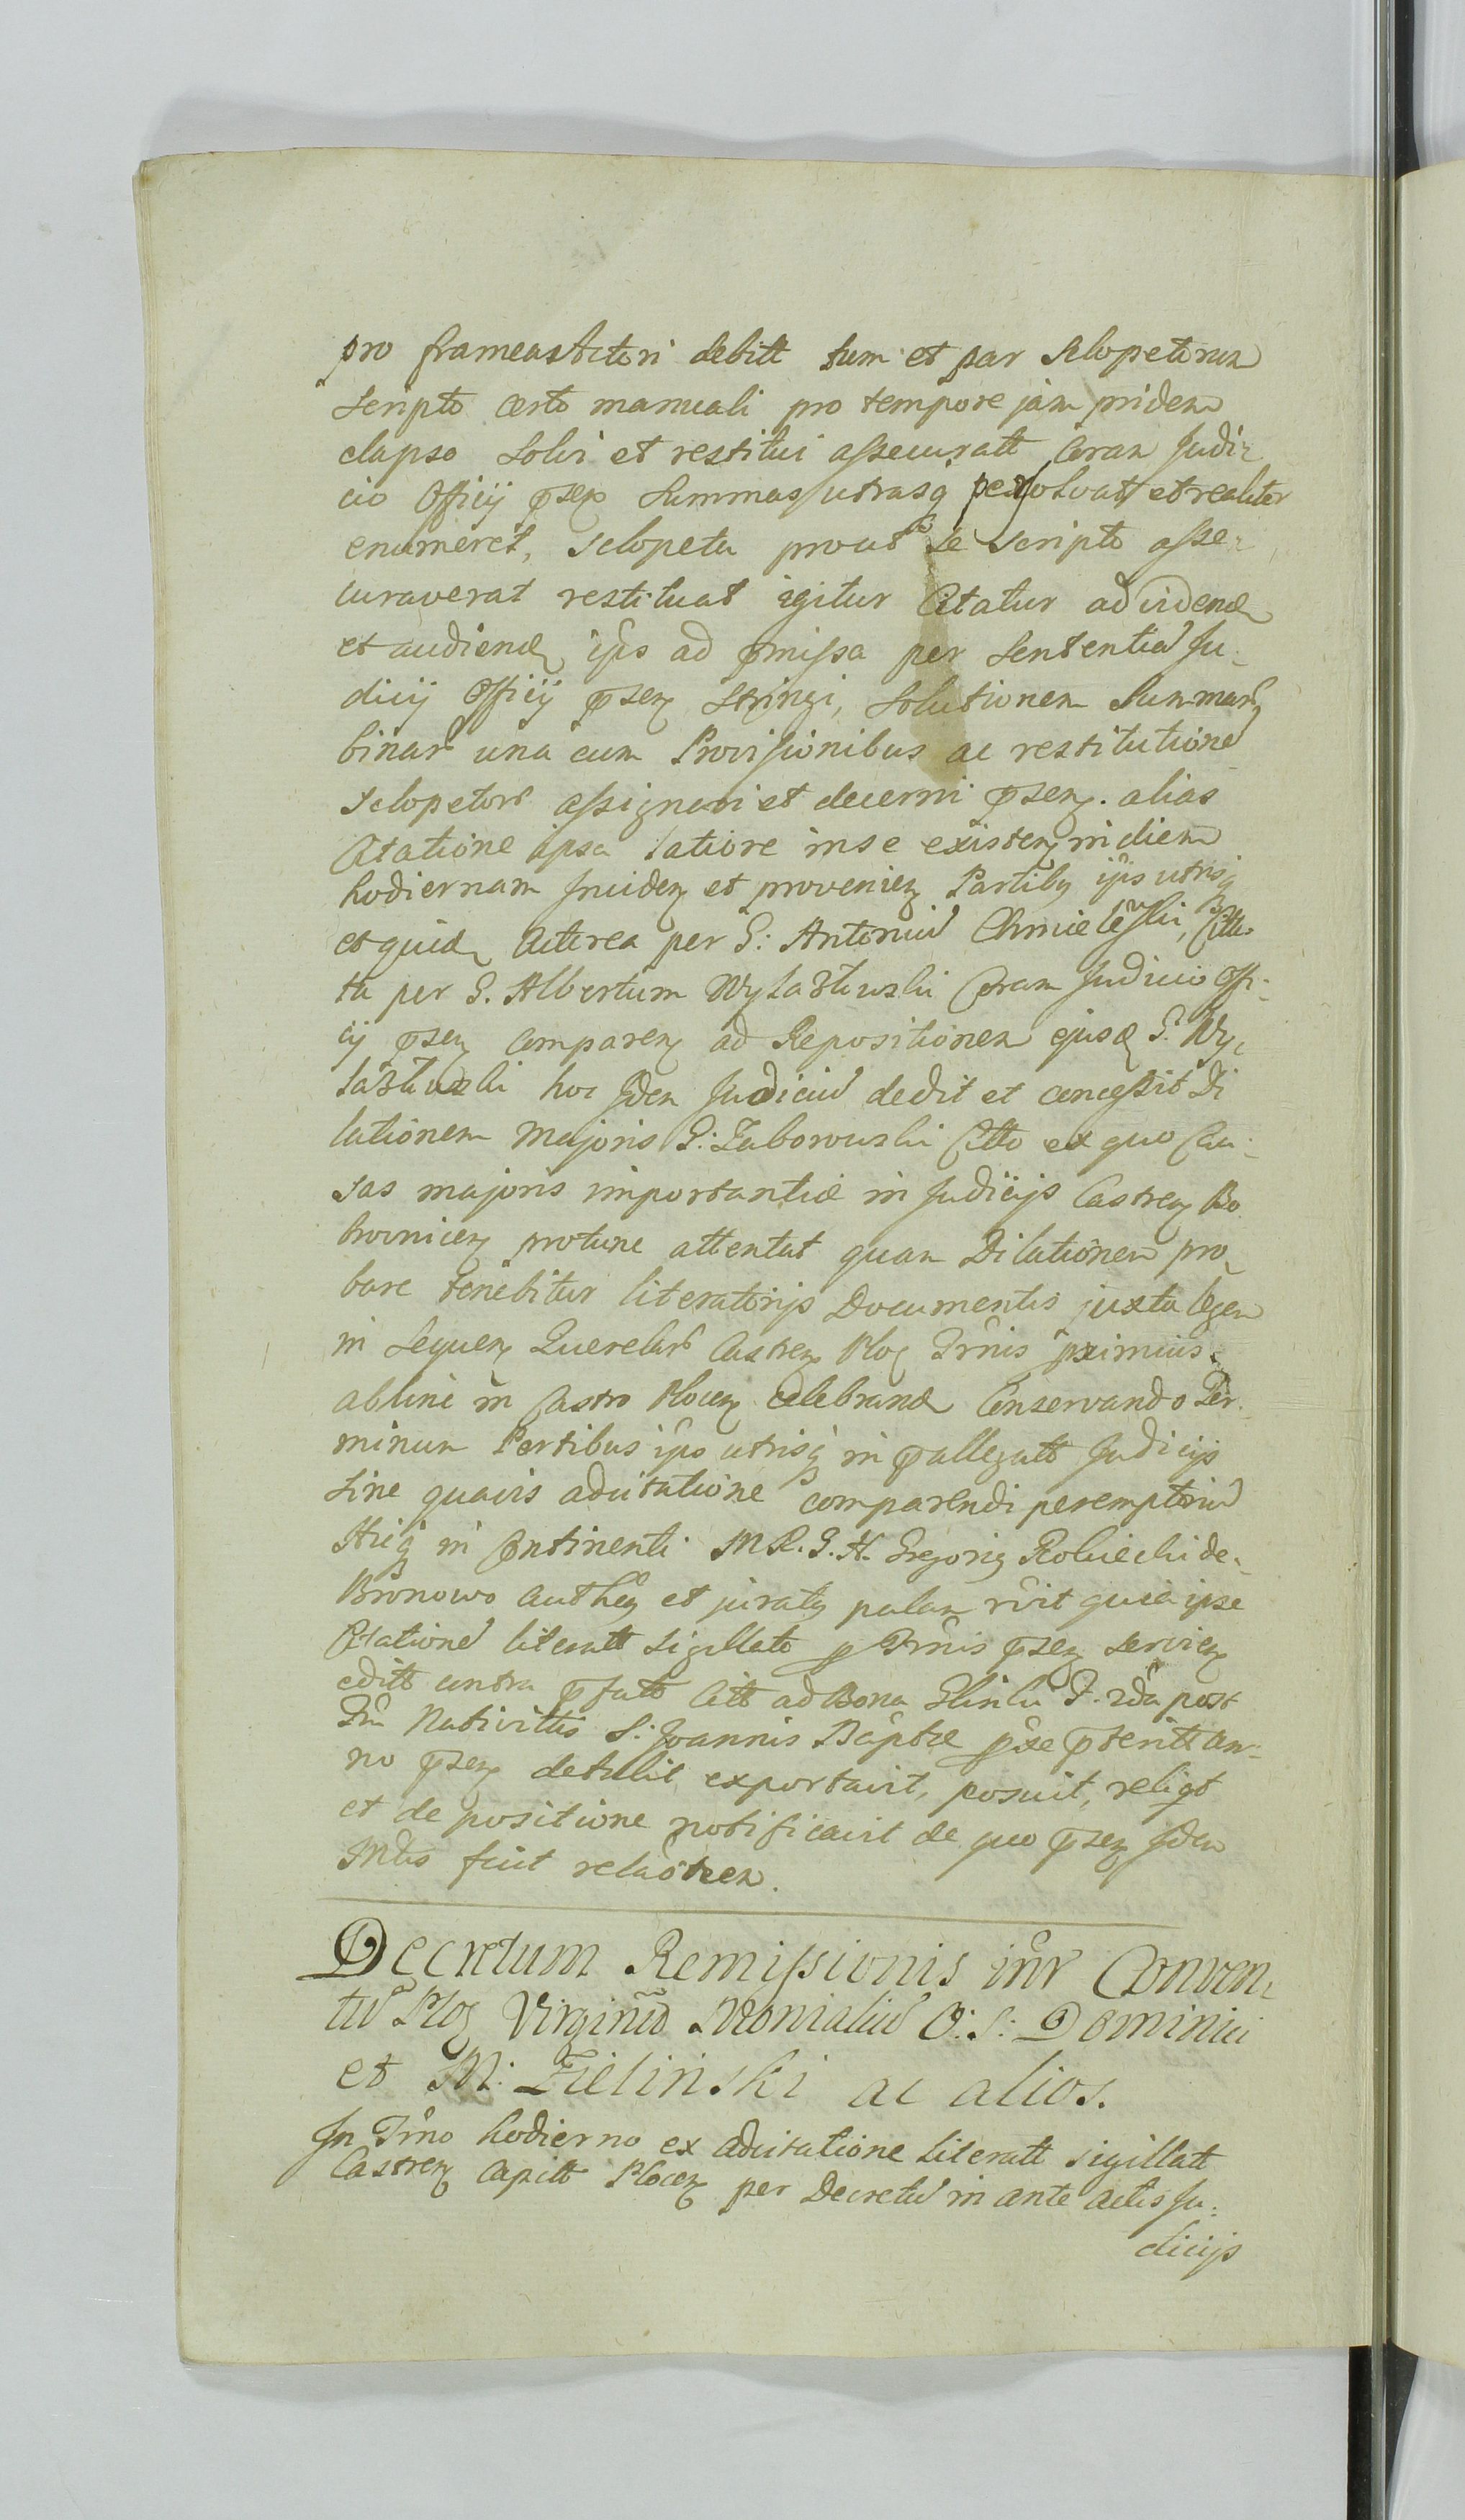 pro frameas Actori debitt tum et par Sclopetorum
Scripto certo manuali pro tempore jam pridem
elapso Solvi et restitui assecuratt Coram Judi-
cio Officij pñsen Summas utrasq persolvat et realiter
enumeret, Sclopeta prout se Scripto asse-
curaverat restituat igitur Citatur ad videnđ
et audienđ ipŝ ad pmissa per Sententiã Ju-
dicij Officij pñsen Stringi, Solutionem Summarũ
binarũ una cum Provisionibus ac restitutione
Sclopetorũ assignari et decerni pñsen. alias
Citatione ipsa latiore in se existen in diem
hodiernam Inciden et provenien Partibq ipŝ utrisq
et quidẽ Actorea per G: Antoniũ Chmielewski, Citta-
ta per G. Albertum Wylazłowski Coram Judicio Offi-
cij pñsen Comparen ad Repositionem ejusđ G. Wy-
lazłowski hoc Idem Judiciũ dedit et concessit Di
lationem Majoris G: Zaborowski Citto ex quo Cau-
sas majoris importantiæ in Judicijs Castren Bo
brownicen protunc attentat quam Dilationem pro-
bare tenebitur literatorijs Documentis juxta legem
in Sequen Querelarũ Castren Ploc Trñis pximius
abhinc in Castro Plocen celebranđ Conservando Ter-
minum Partibus ipŝ utrisq in pallegatt Judicijs
Sine quavis adcitatione comparendi peremptoriũ
Hicq in Continenti M.R.G.H. Gregoriq Robiecki de
Bronowo Authen et juratq palam rvit quia ipse
Citationẽ literatt Sigillatt p Trñis pñsen servien
editt contra pfatt Citt ad Bona Glinki F. 2da post
Fm Nativittis S: Joannis Baptæ pxe pteritt An-
no pñsen detulit exportavit, posuit, reliqt
et de positione notificavit de quo pñsen Idem
Mtris fecit relaõnem.
Decretum Remissionis int̃r Conven-
tũ Ploc Virginũ Monialiũ O: S: Dominici
et M: Zielinski ac alios.
In Trño hodierno ex adcitatione literatt sigillatt
Castren Capitt Plocen per Decretũ in ante actis Ju-
dicijs